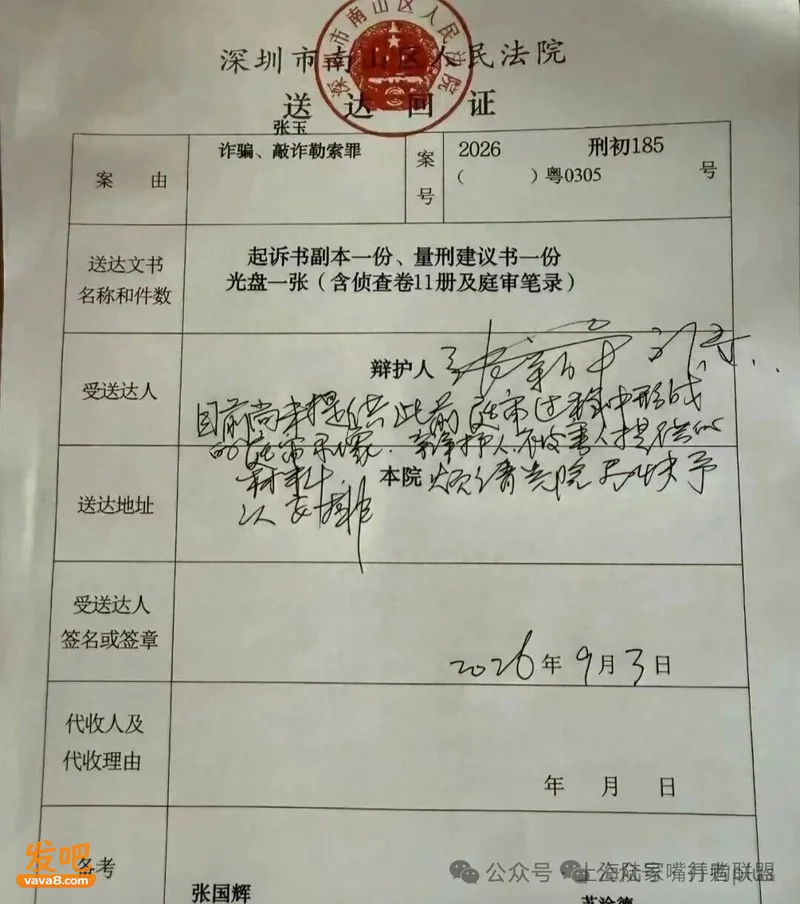 深圳市南山区人民法院
深圳市南山区人民法院
送达回证
张玉
案由
诈骗、敲诈勒索罪
案号
2026 刑初185
( )粤0305 号
送达文书
名称和件数
起诉书副本一份、量刑建议书一份
光盘一张(含侦查卷11册及庭审笔录)
受送达人
辩护人
目前尚未提供此前庭审过程中形成
的庭审录像、辩护人、被害人提供的
材料。
送达地址
本院 烦请贵院尽快予
以安排
受送达人
签名或签章
2026年9月3日
代收人及
代收理由
年 月 日
备考
张国辉
发吧
vava8.com
公众号
上海陆家嘴行者联盟